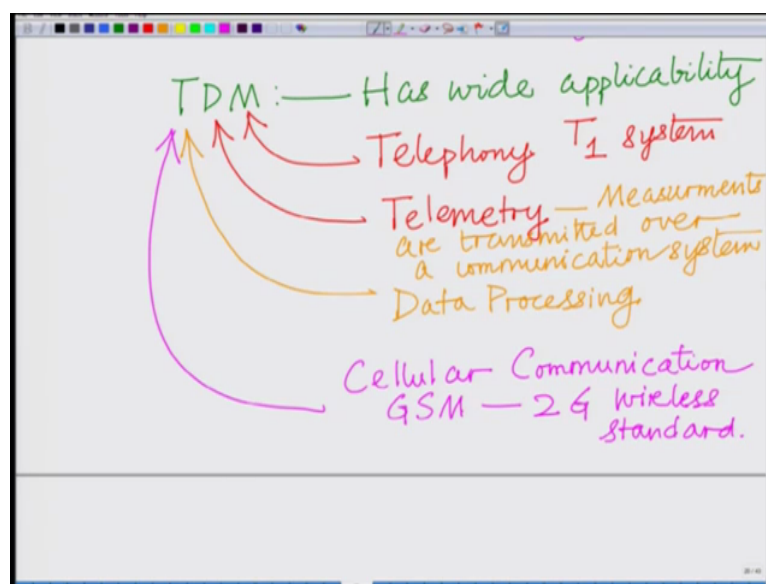 TDM :— Has wide applicability
Telephony T1 system
Telemetry — Measurments
are transmitted over
a communication system
Data Processing
Cellular Communication
GSM — 2G wireless
standard.